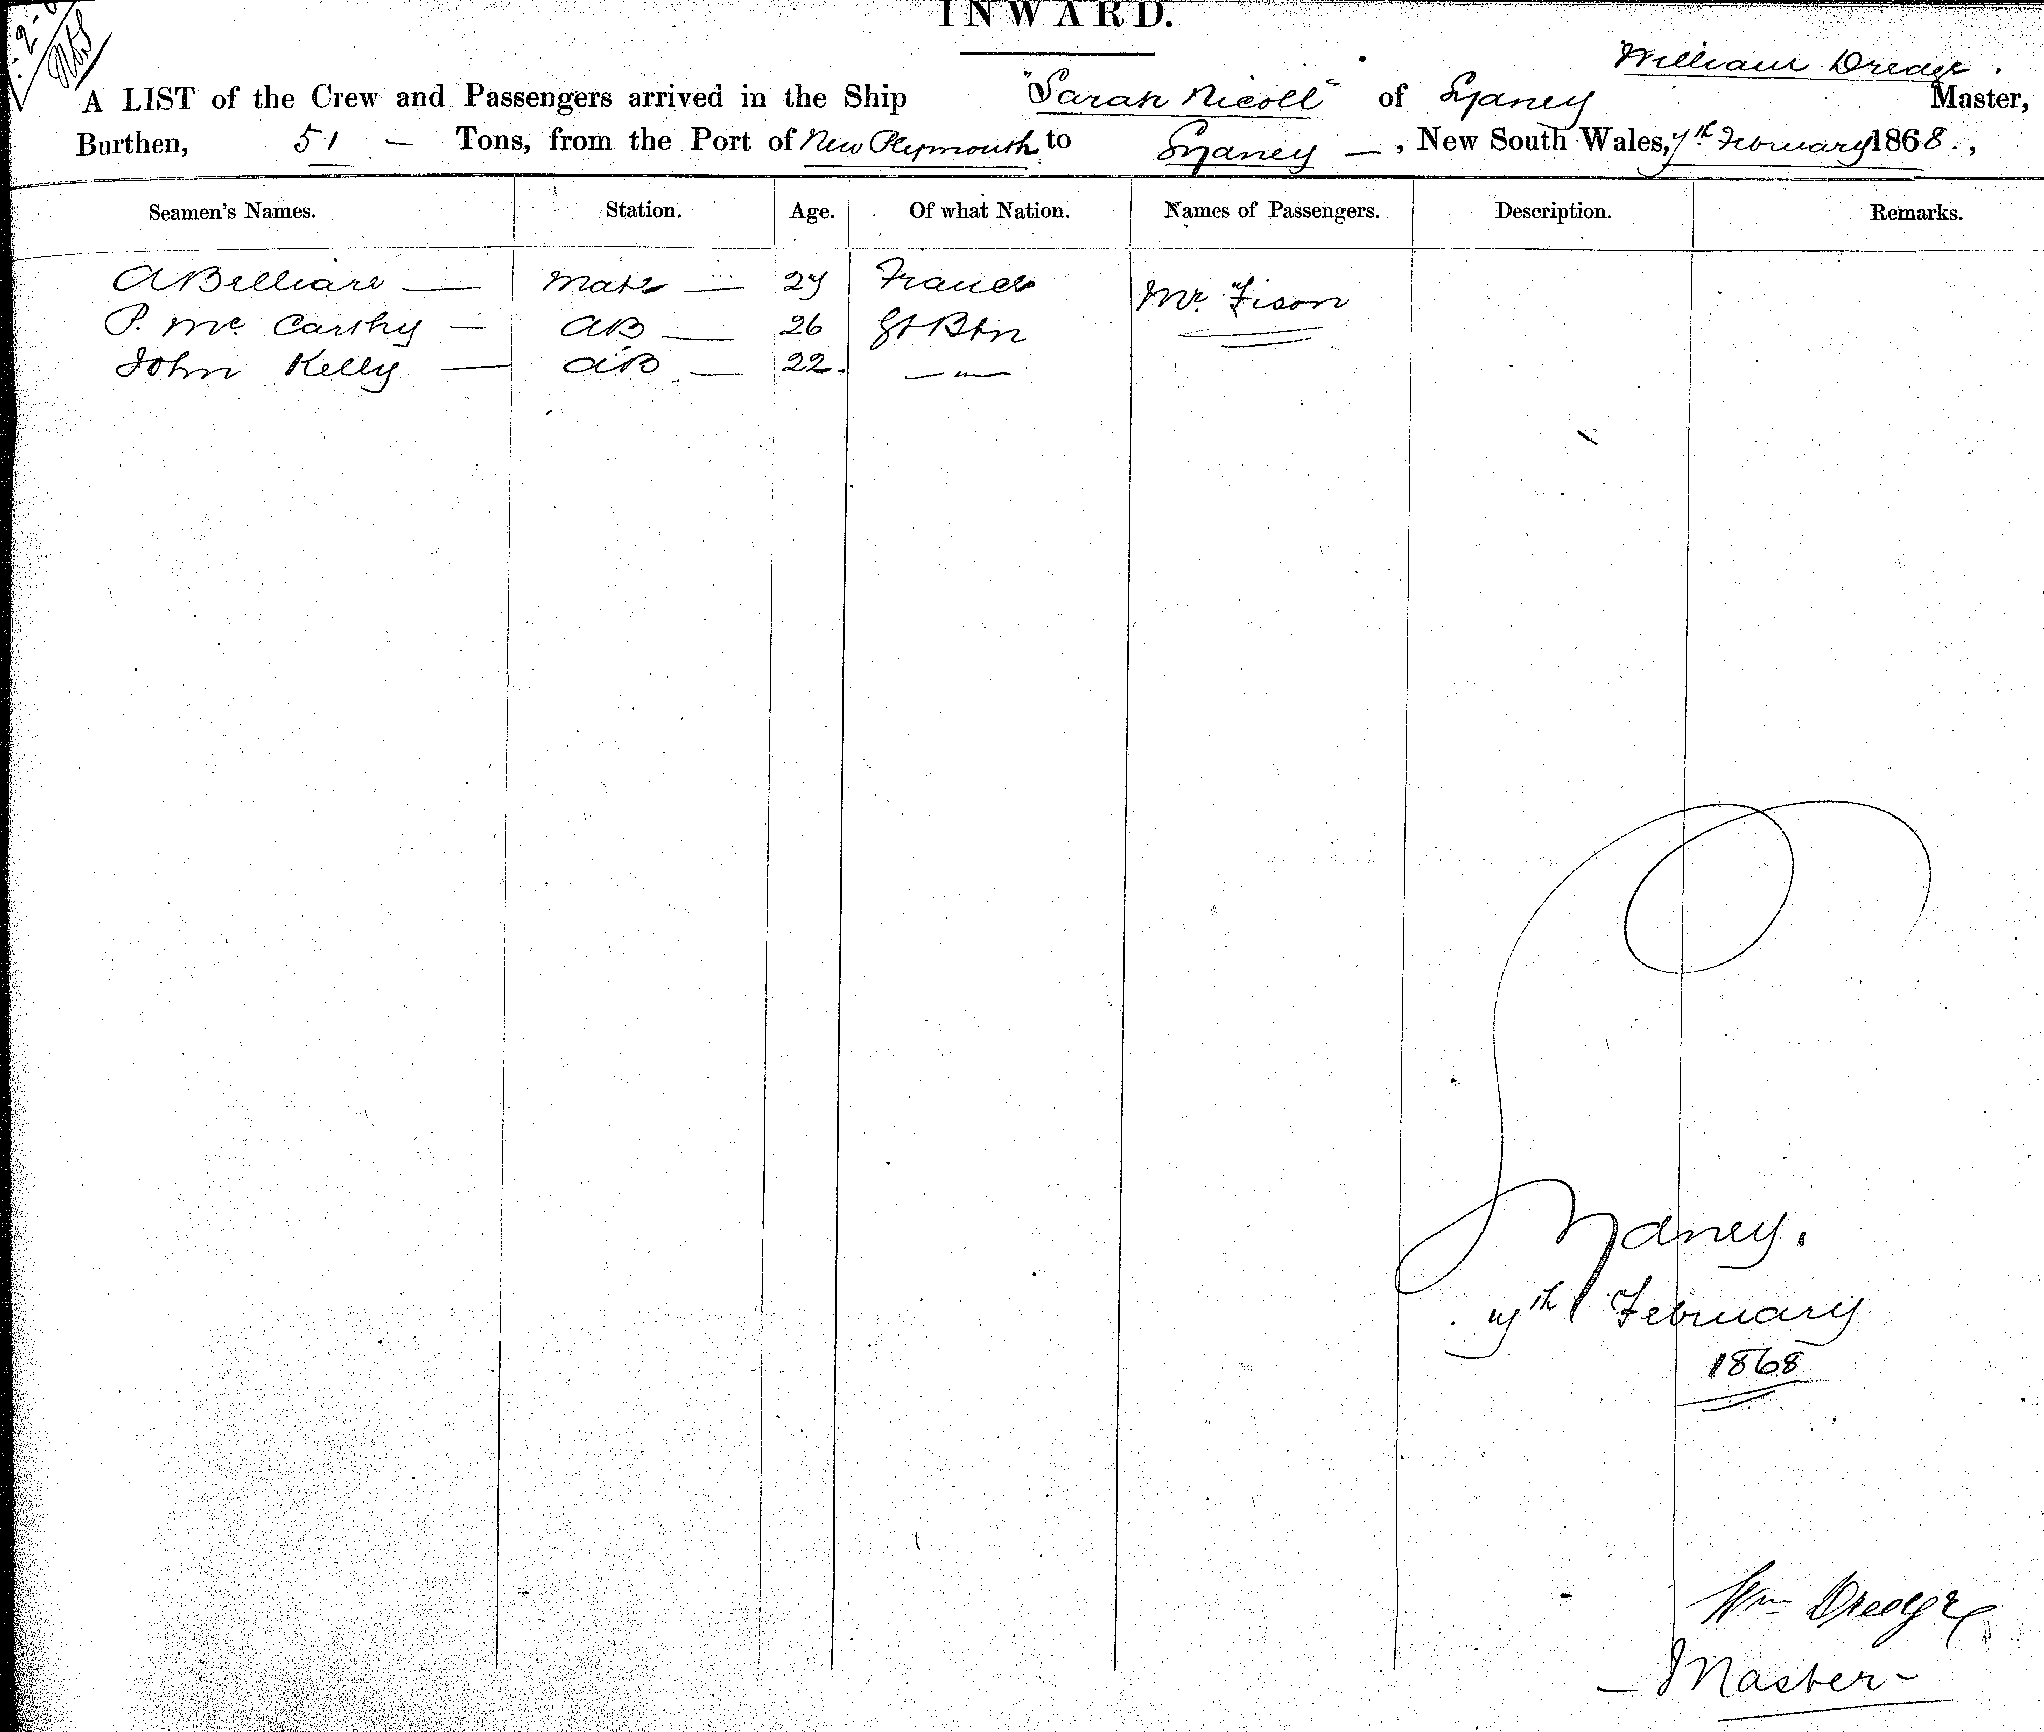 INWARD.
William Dredge.
A LIST of the Crew and Passengers arrived in the Ship "Sarah Nicoll" of Sydney Master,
Burthen, 51 — Tons, from the Port of New Plymouth to Sydney —, New South Wales, 7th February 1868.,
Seamen's Names. Station. Age. Of what Nation. Names of Passengers. Description. Remarks.
A Billiare — Mate — 27 France Mr. Fison
P. Mc Carthy — AB — 26 Gt Btn
John Kelly — AB — 22. — " —
Sydney.
7th February
1868
Wm Dredge
— Master —